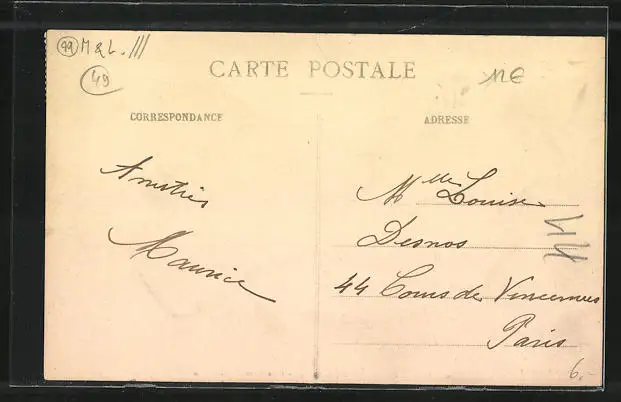 49 M & L. ///
49
CARTE POSTALE
11€
CORRESPONDANCE
ADRESSE
Amitiés
Maurice
Mlle Louise
Desnos
44 Cours de Vincennes
Paris
6.-